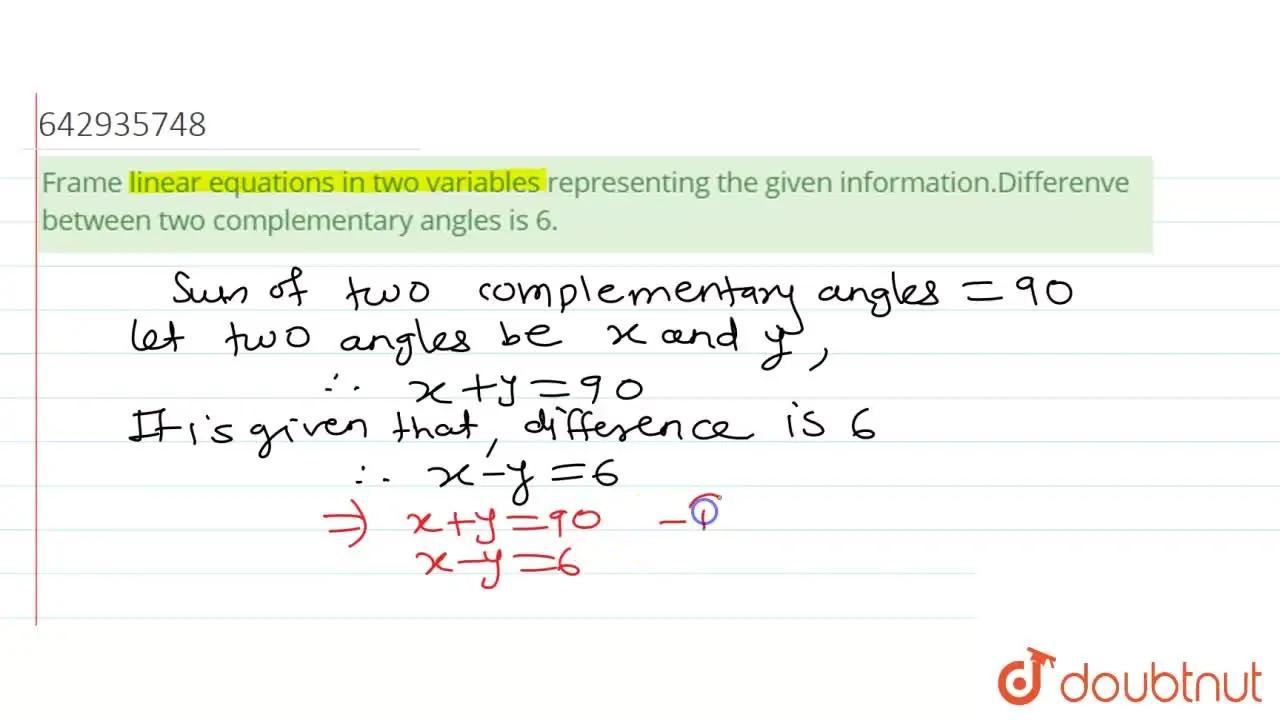 642935748
Frame linear equations in two variables representing the given information.Differenve
between two complementary angles is 6.
Sum of two complementary angles = 90
let two angles be x and y,
∴ x+y=90
It is given that, difference is 6
∴ x-y=6
⇒ x+y=90 -
x-y=6
doubtnut